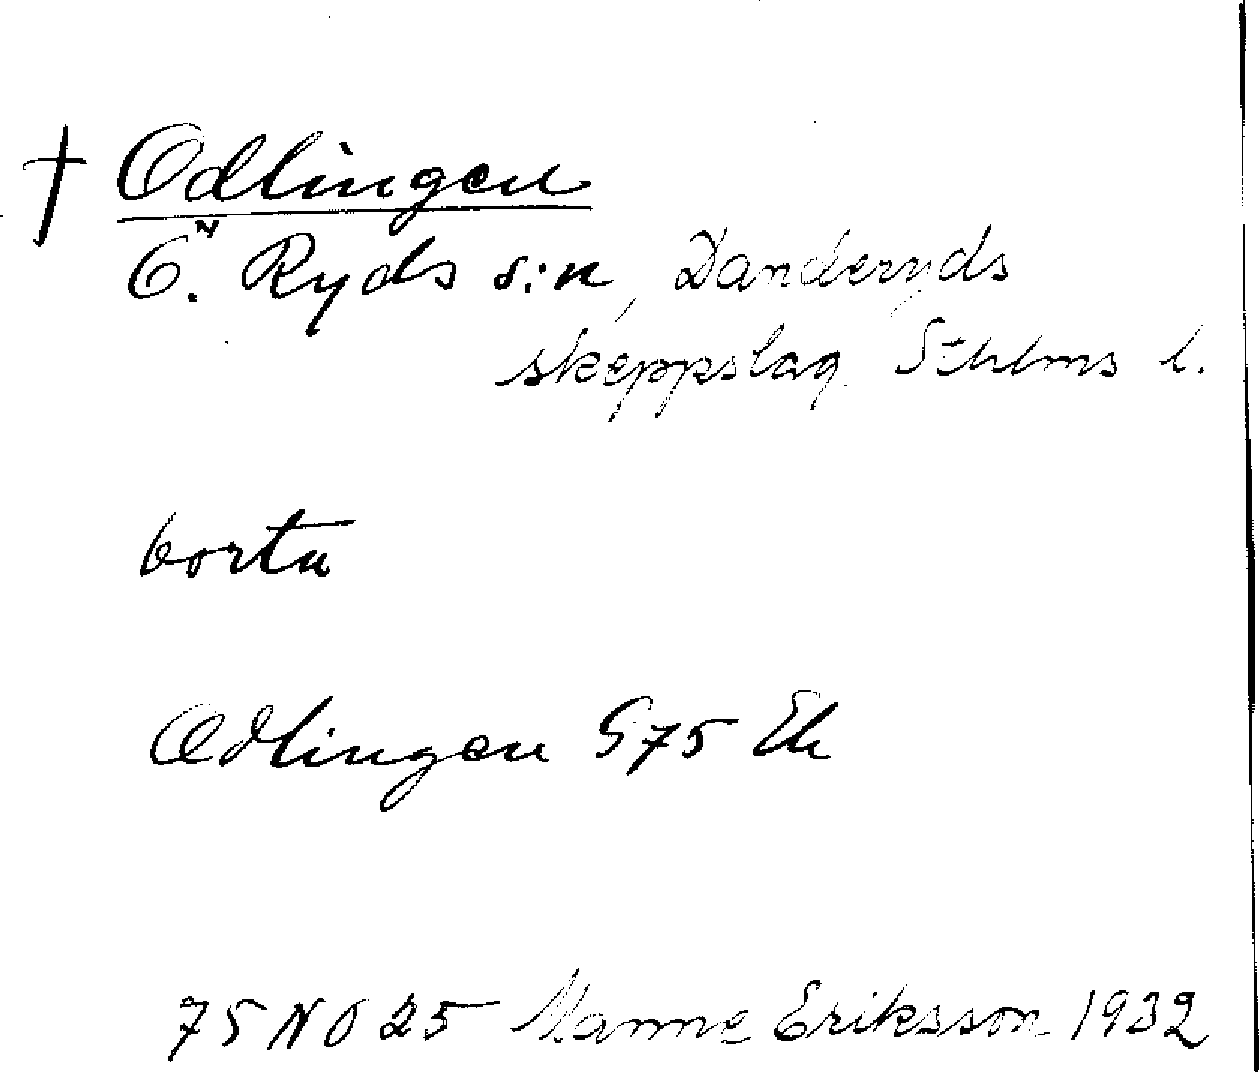 † Odlingen
Ö. Ryds s:n, Danderyds
skeppslag. Sthlms l.
borta
Odlingen G75 Ek
75 NO 25 Manne Eriksson 1932